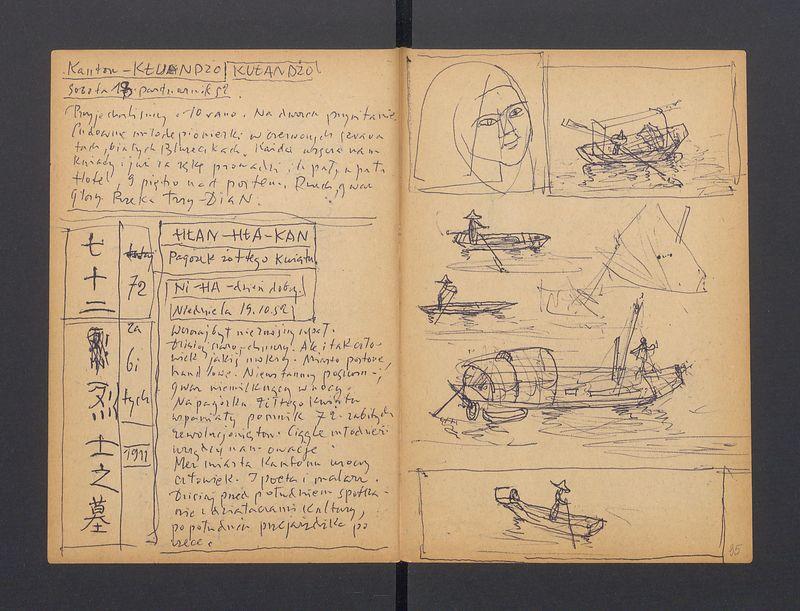 Kanton - KŁUANDŻO KUŁANDŻO
Sobota 18. październik 52.
Przyjechaliśmy o 10 rano. Na dworcu przywitanie
Cudowne młode pionierki w czerwonych krawa
tach, białych bluzeczkach. Każda wręcza nam
kwiaty i już za rękę prowadzi
Hotel, 9 piętro nad portem. Ruch, gwar
Rzeka
七十二
72
烈士之墓
za
bi
tych
1911
HŁAN-HŁA-KAN
Pagórek żółtego kwiatu
Ni-HA - dzień dobry
Niedziela 19.10.52
Wczoraj był nieznośny upał.
Dzisiaj pochmurny. Ale i tak czło-
wiek jakiś mokry. Miasto portowe
handlowe. Nieustanny
gwar niemilknący w nocy.
Na pagórku żółtego kwiatu
wspaniały pomnik 72 zabitych
rewolucjonistów. Ciągle młodzież
urządza nam owacje
Mer miasta Kantonu uroczy
człowiek. I poeta i malarz.
Dzisiaj przed południem spotka-
nie z działaczami kultury,
po południu przejażdżka po
rzece.
95